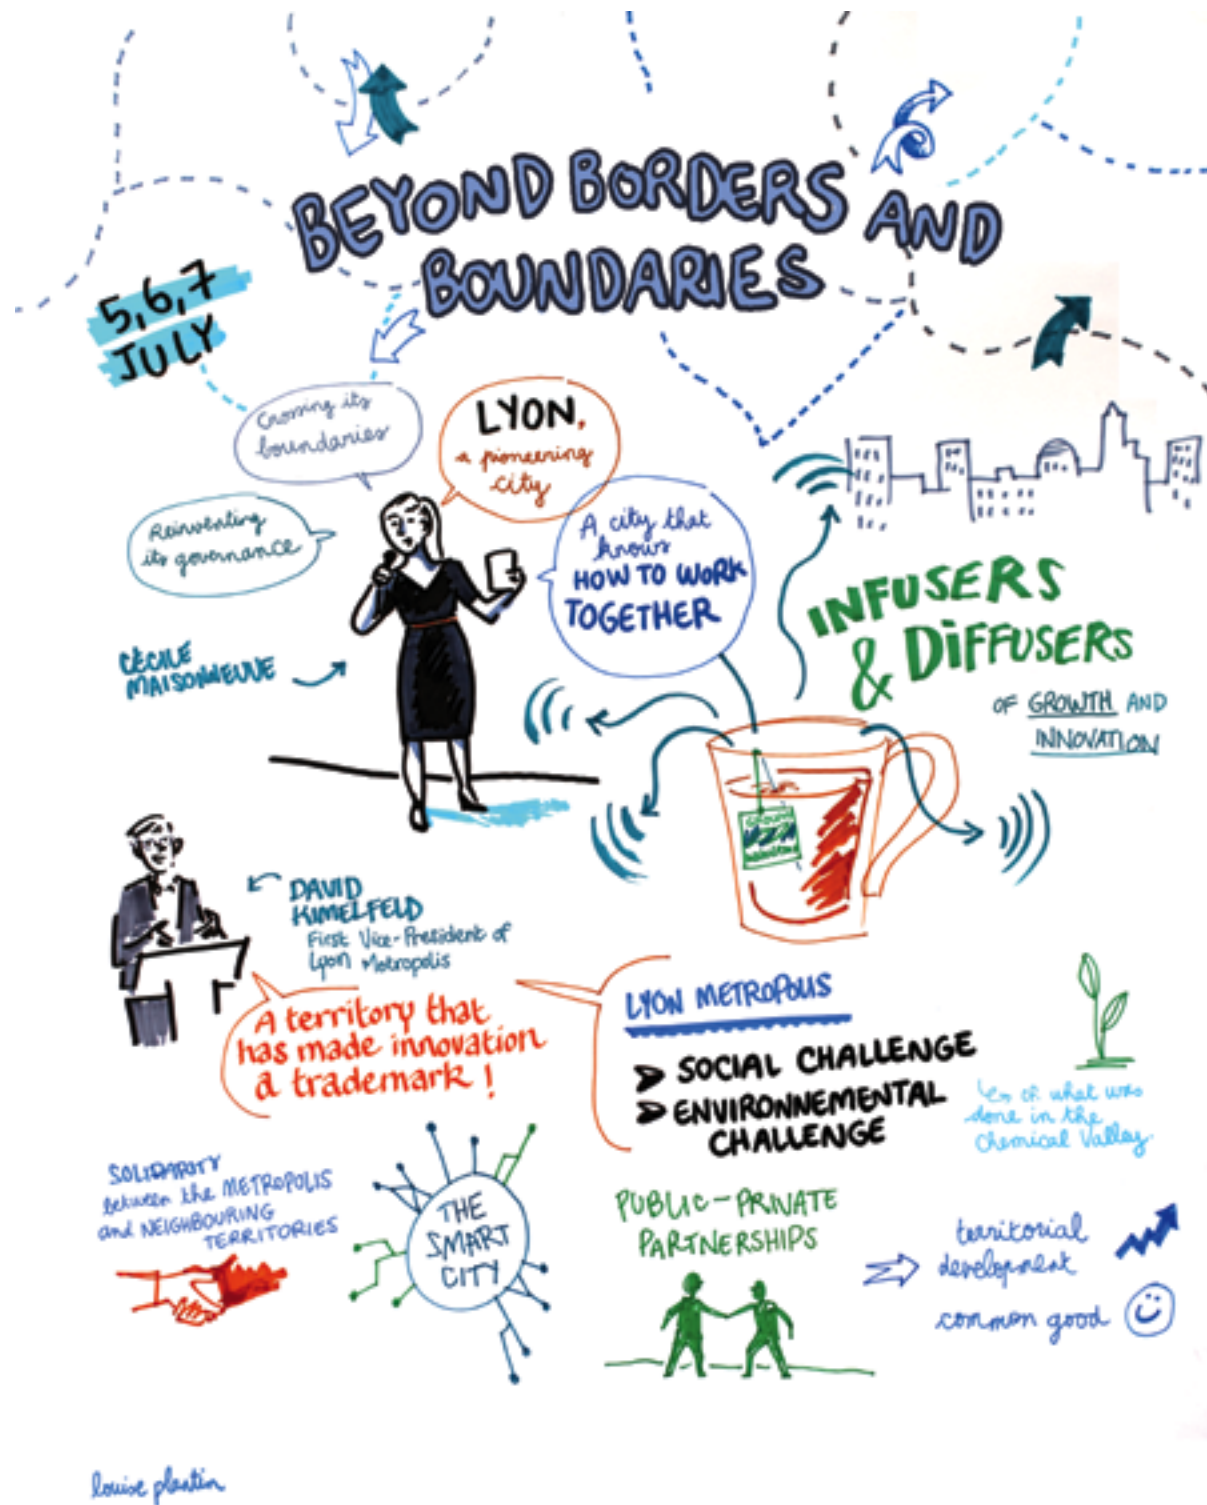 BEYOND BORDERS AND
BOUNDARIES
5,6,7
JULY
Crossing its
boundaries
LYON,
a pioneering
city
Reinventing
its governance
A city that
knows
HOW TO WORK
TOGETHER
CÉCILE
MAISONNEUVE
INFUSERS
& DiFFUSERS
OF GROWTH AND
INNOVATION
GROWTH
DAVID
KIMELFELD
First Vice-President of
Lyon Metropolis
A territory that
has made innovation
a trademark !
LYON METROPOLIS
SOCIAL CHALLENGE
ENVIRONNEMENTAL
CHALLENGE
of what was
done in the
Chemical Valley
SOLIDARITY
between the METROPOLIS
and NEIGHBOURING
TERRITORIES
THE
SMART
CITY
PUBLIC-PRIVATE
PARTNERSHIPS
territorial
development
common good
louise plantin